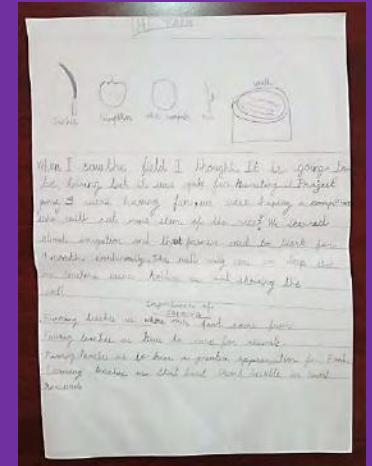 sickle
well
When I saw the field I thought It is going to
be boring but it was quite fascinating. Project
and I were having fun, we were having a competition
who will cut more stem of the rice. We learned
about irrigation and that farmers need to work for
4 months continuously. The well was so deep that
our teachers were holding us and showing the
well.
Importance of
Farming teaches us where our food come from
Farming teaches us how to care for animals.
Farming teaches us to have a greater appreciation for Food.
Farming teaches us that hard work results in great
rewards